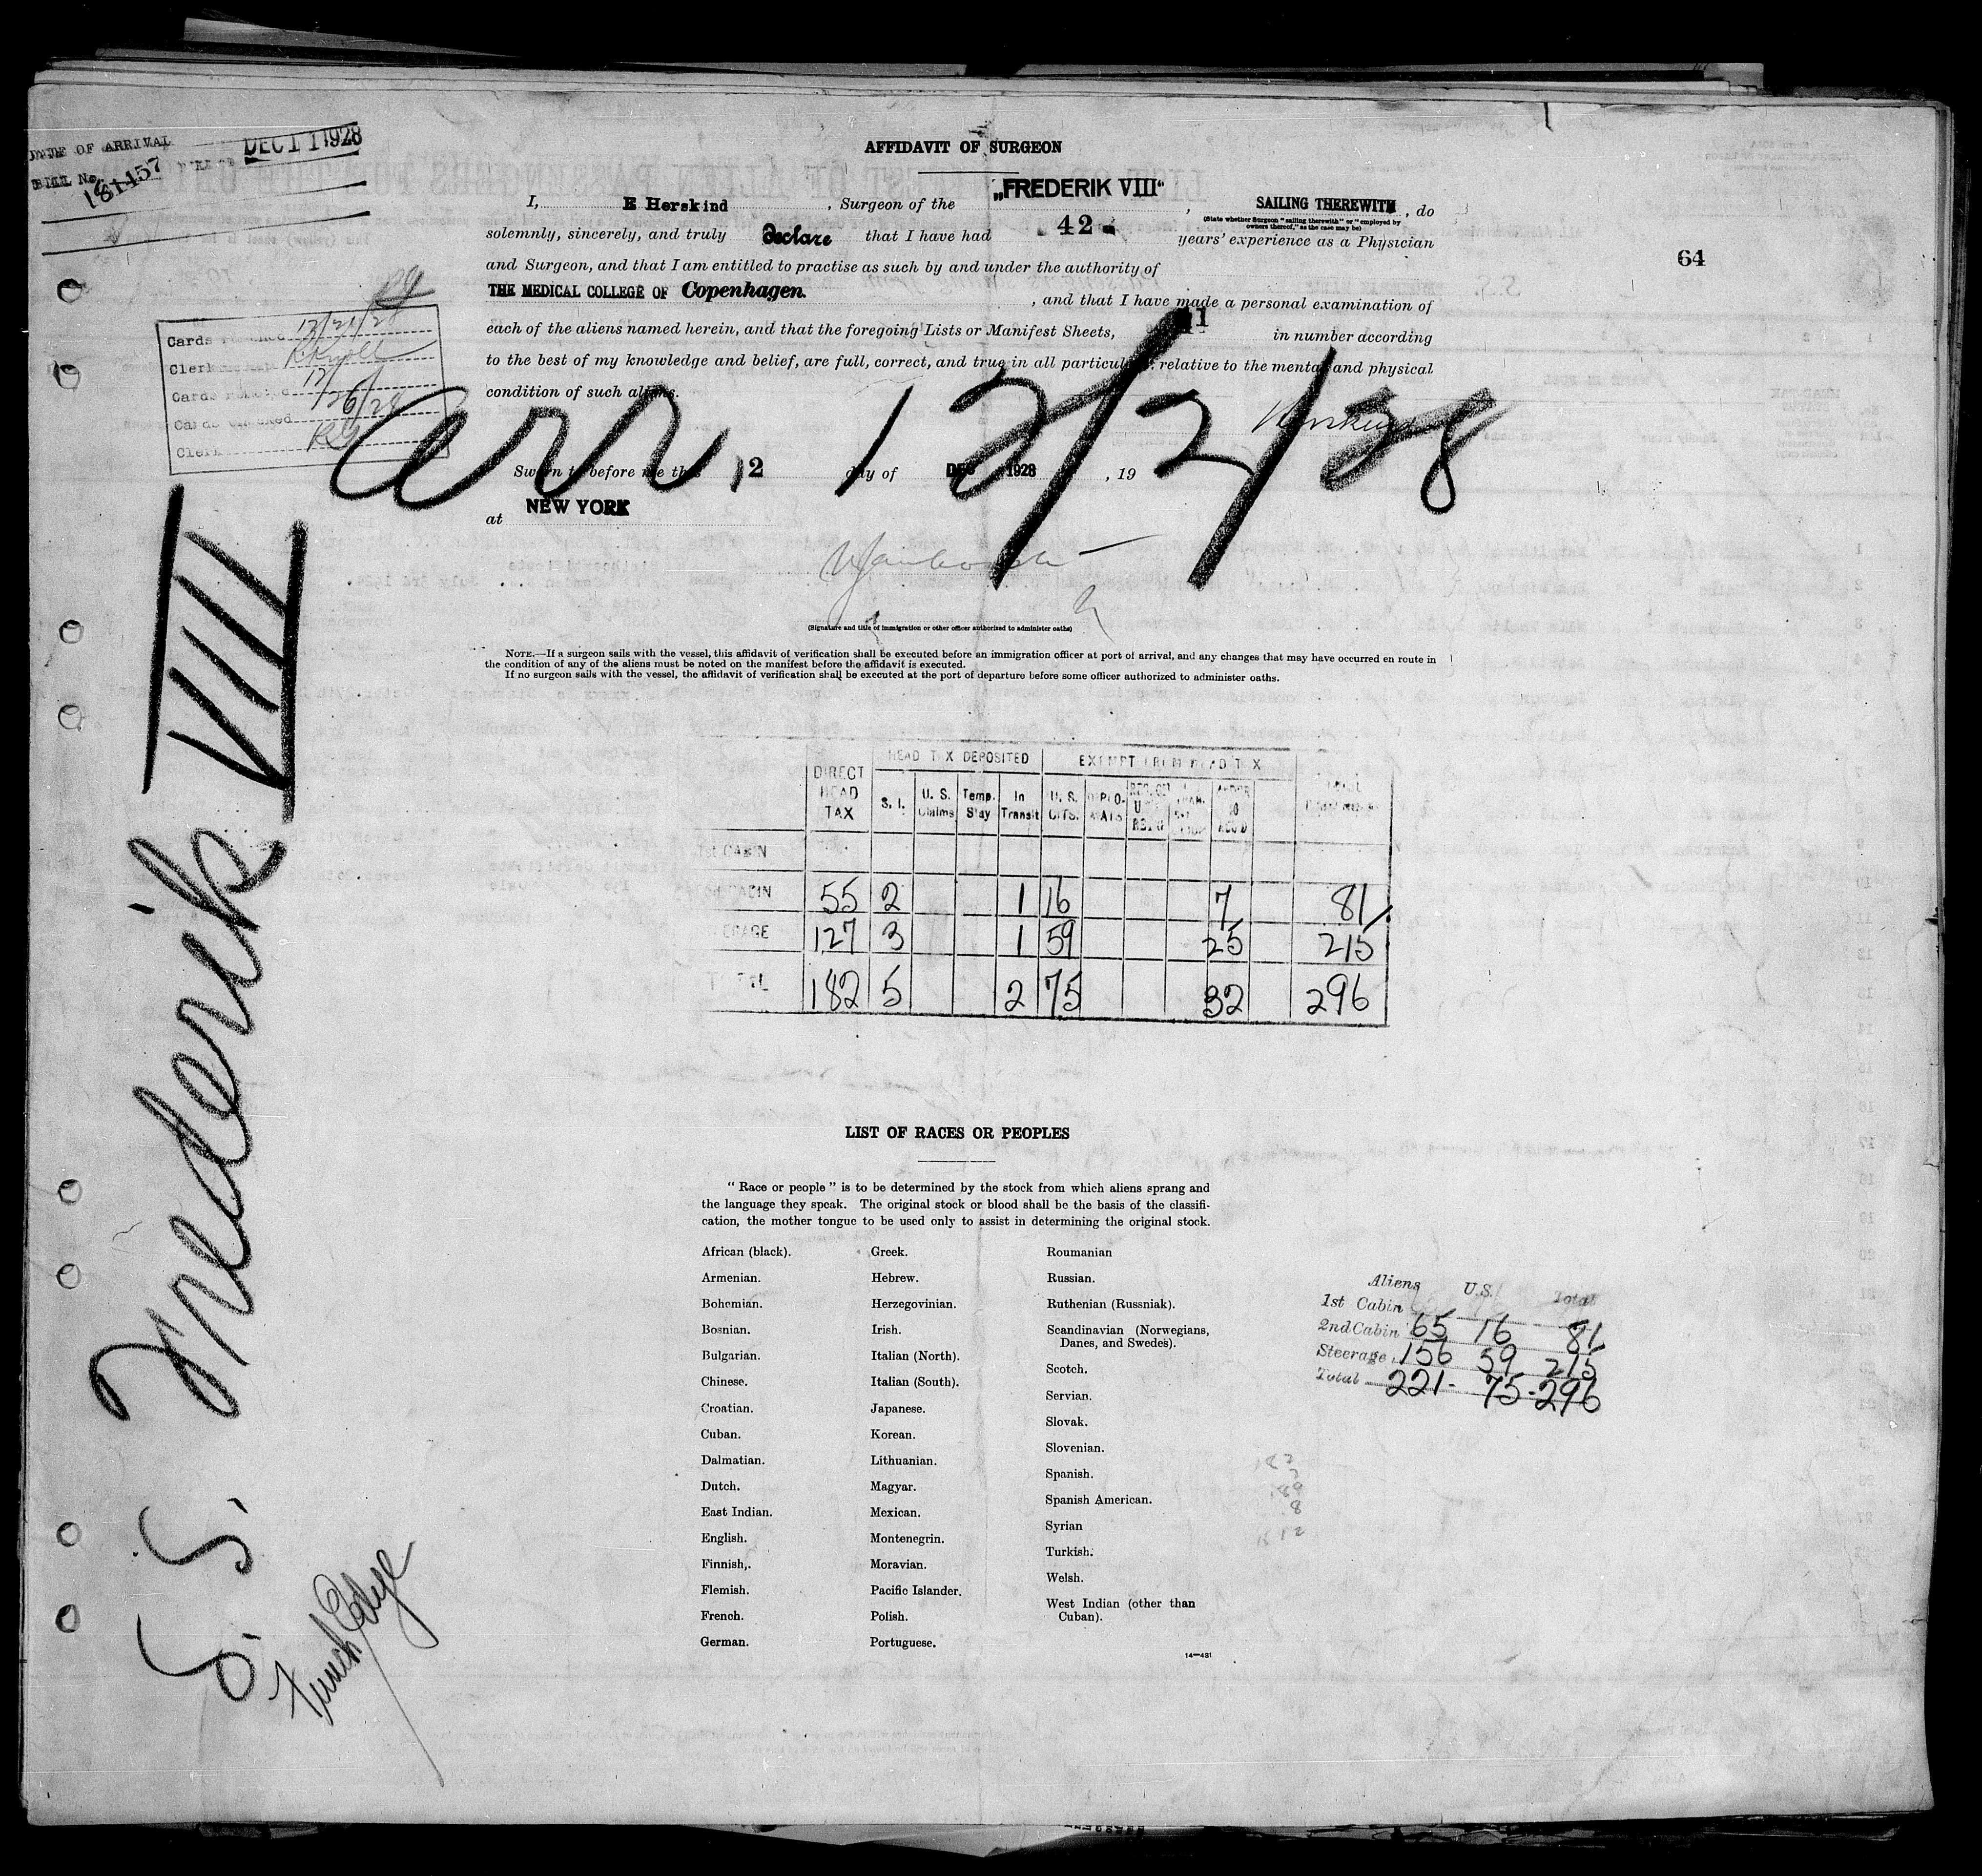 DATE OF ARRIVAL DEC 11 1928
BILL No. 181457
AFFIDAVIT OF SURGEON
I, E Herskind, Surgeon of the „FREDERIK VIII“, SAILING THEREWITH, do
(State whether Surgeon "sailing therewith" or "employed by
owners thereof," as the case may be)
solemnly, sincerely, and truly declare that I have had 42 years' experience as a Physician
and Surgeon, and that I am entitled to practise as such by and under the authority of
THE MEDICAL COLLEGE OF Copenhagen.
, and that I have made a personal examination of
each of the aliens named herein, and that the foregoing Lists or Manifest Sheets, 1 in number according
to the best of my knowledge and belief, are full, correct, and true in all particulars relative to the mental and physical
condition of such aliens.
64
Cards 12/21/28
Clerk
Cards 12/
Cards checked 26/28
Clerk RG
Arr. 12/2/28
Herskind
Sworn to before me this 2 day of DEC 1928, 19
at NEW YORK
(Signature and title of immigration or other officer authorized to administer oaths)
NOTE.—If a surgeon sails with the vessel, this affidavit of verification shall be executed before an immigration officer at port of arrival, and any changes that may have occurred en route in
the condition of any of the aliens must be noted on the manifest before the affidavit is executed.
If no surgeon sails with the vessel, the affidavit of verification shall be executed at the port of departure before some officer authorized to administer oaths.
S. S. Frederik VIII
DIRECT HEAD TAX
HEAD TAX DEPOSITED
EXEMPT FROM HEAD TAX
S. I. U. S. Claims Temp. Stay In Transit U. S. CITS. DIPLOMATS
1st CABIN
CABIN 55 2 1 16 7 81
STEERAGE 127 3 1 59 25 215
TOTAL 182 5 2 75 32 296
LIST OF RACES OR PEOPLES
"Race or people" is to be determined by the stock from which aliens sprang and
the language they speak. The original stock or blood shall be the basis of the classifi-
cation, the mother tongue to be used only to assist in determining the original stock.
African (black).
Armenian.
Bohemian.
Bosnian.
Bulgarian.
Chinese.
Croatian.
Cuban.
Dalmatian.
Dutch.
East Indian.
English.
Finnish,.
Flemish.
French.
German.
Greek.
Hebrew.
Herzegovinian.
Irish.
Italian (North).
Italian (South).
Japanese.
Korean.
Lithuanian.
Magyar.
Mexican.
Montenegrin.
Moravian.
Pacific Islander.
Polish.
Portuguese.
Roumanian
Russian.
Ruthenian (Russniak).
Scandinavian (Norwegians,
Danes, and Swedes).
Scotch.
Servian.
Slovak.
Slovenian.
Spanish.
Spanish American.
Syrian
Turkish.
Welsh.
West Indian (other than
Cuban).
14—431
Aliens U.S. Total
1st Cabin
2nd Cabin 65 16 81
Steerage 156 59 215
Total 221 - 75 - 296